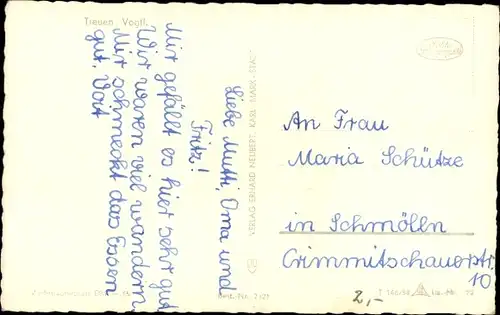 Treuen Vogtl.
Liebe Mutti, Oma und
Fritz!
Mir gefällt es hier sehr gut
Wir waren viel wandern.
Mir schmeckt das Essen
gut. Voit
VERLAG ERHARD NEUBERT, KARL-MARX-STADT
An Frau
Maria Schütze
in Schmölln
Crimmitschauerstr.
10
2,-